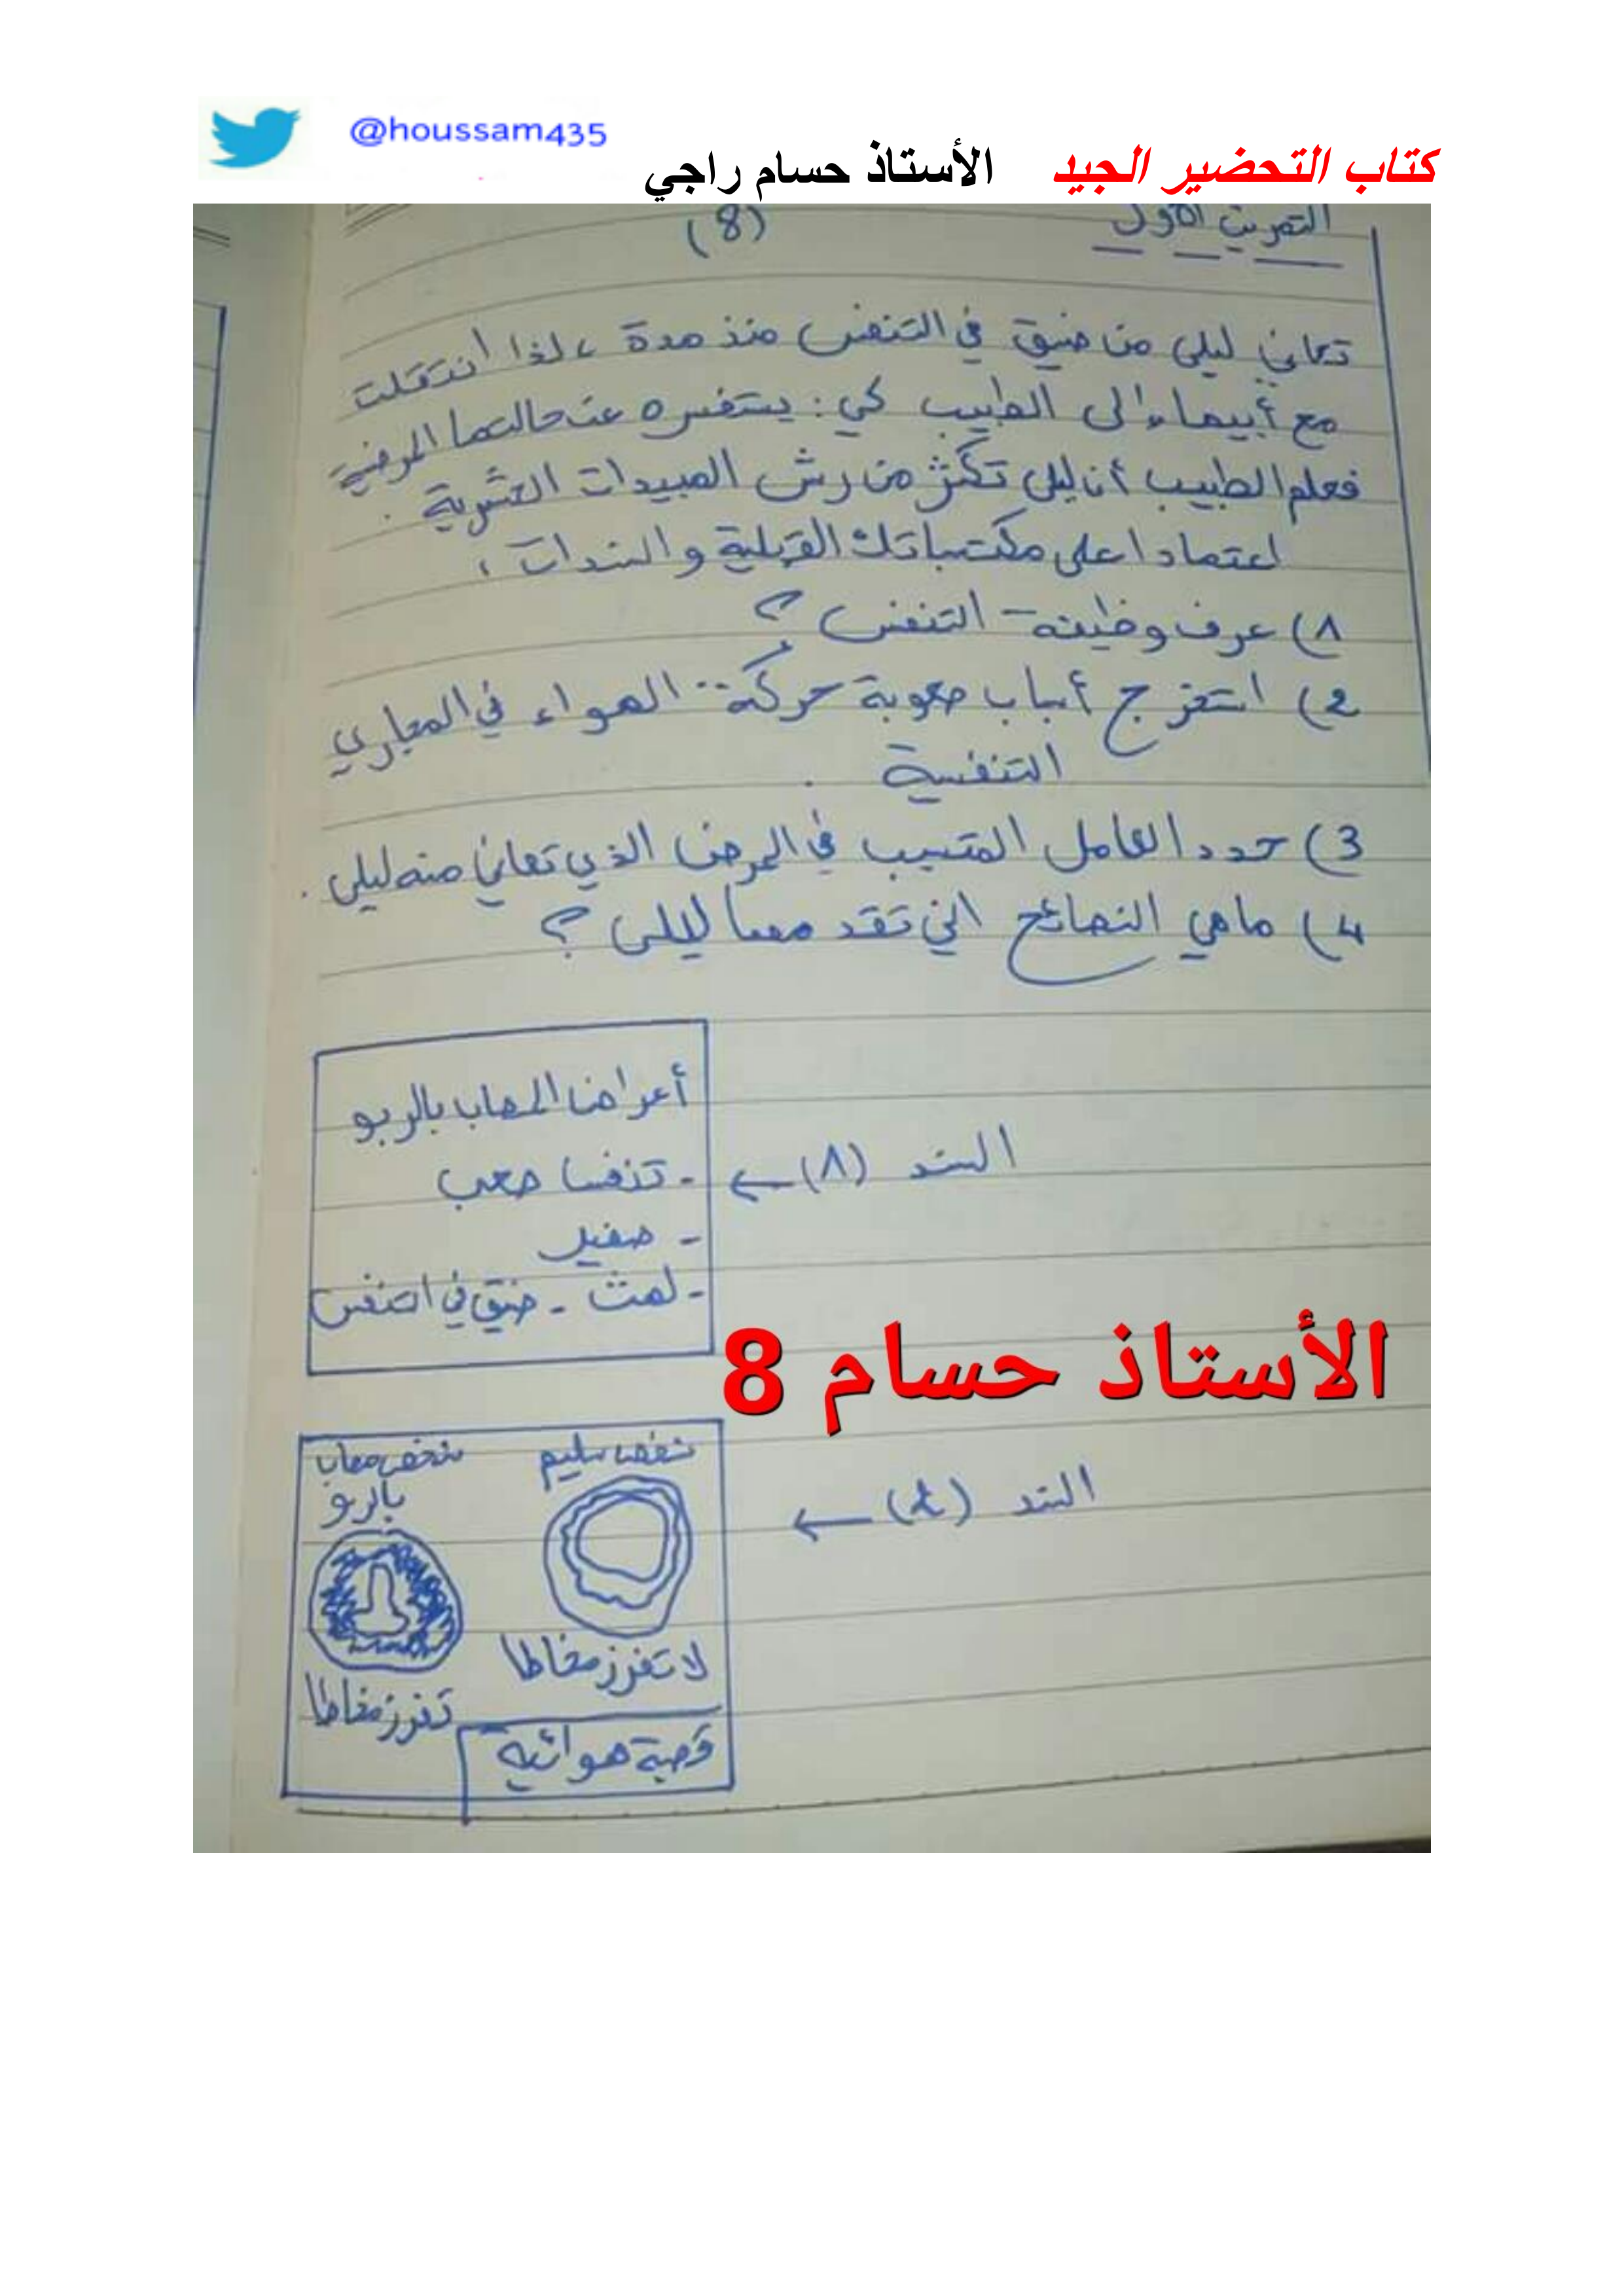 @houssam435
كتاب التحضير الجيد الأستاذ حسام راجي
التمرين الأول (8)
تعاني ليلى من ضيق في التنفس منذ مدة، لذا انتقلت
مع أبيها إلى الطبيب كي: يستفسره عن حالتها المرضية
فعلم الطبيب أن ليلى تكثر من رش المبيدات الحشرية.
اعتمادا على مكتسباتك القبلية والسندات،
1) عرف وظيفة التنفس؟
2) استخرج أسباب صعوبة حركة الهواء في المجاري
التنفسية.
3) حدد العامل المتسبب في المرض الذي تعاني منه ليلى.
4) ماهي النصائح التي تقدمها ليلى؟
أعراض المصاب بالربو
السند (1) ← - تنفسا صعب
- صفير
- لهث - ضيق في التنفس
الأستاذ حسام 8
شخص سليم
شخص مصاب
بالربو
السند (2) ←
لا تفرز مخاطا
تفرز مخاطا
قصبة هوائية